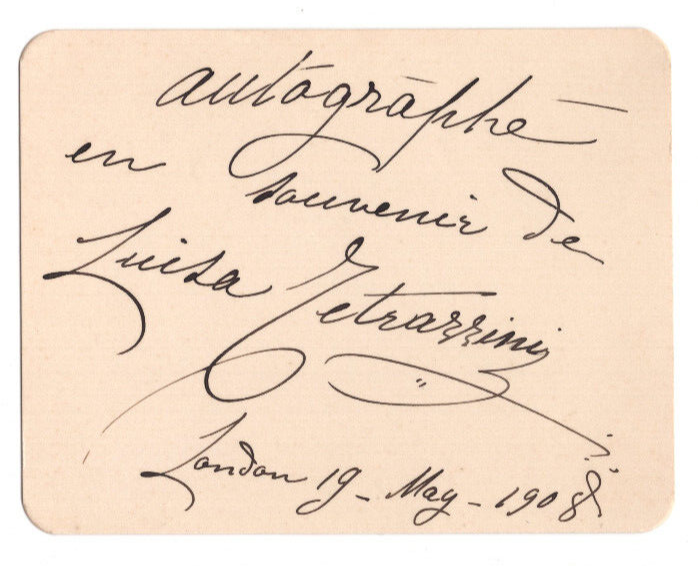 autographe
en souvenir de
Luisa Tetrazzini
London 19 - May - 1908